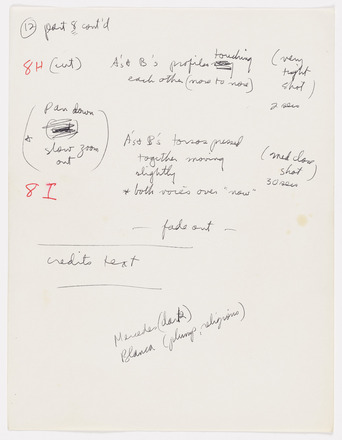 (12) part 8 cont'd
8H (cut) A's & B's profiles touching (very
each other (now to now) tight
shot)
2 secs
(Pan down
*
slow zoom
out)
A's & B's torsos pressed
together moving (med close
slightly shot)
8 I & both voices over "now" 30 secs
— fade out —
credits text
Mercedes (dark)
Blanca (plump, religious)